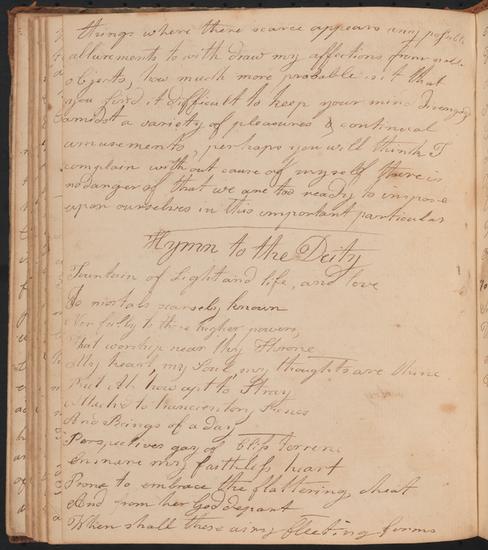 things where there scarce appears any possible
allurements to with draw my affections from
objects, how much more probable is it that
you find it difficult to keep your mind disengag
amidst a variety of pleasures & continual
amusements, perhaps you will think I
complain without cause of my self there is
no danger of that we are too ready to impose
upon ourselves in this important particular
Hymn to the Deity
Fountain of Light and life, and love
To mortals scarsely known
Nor fully to those higher powers,
That worship near thy Throne
My heart, my Soul, my thoughts are thine
But Ah how apt to Stray
Attachd to transient on, Scenes
And Beings of a day
Perspectives gay of Bliss Terrene
Ensnare my faithless heart
Prone to embrace the flattering cheat
And from her God depart
When shall these airy fleeting forms